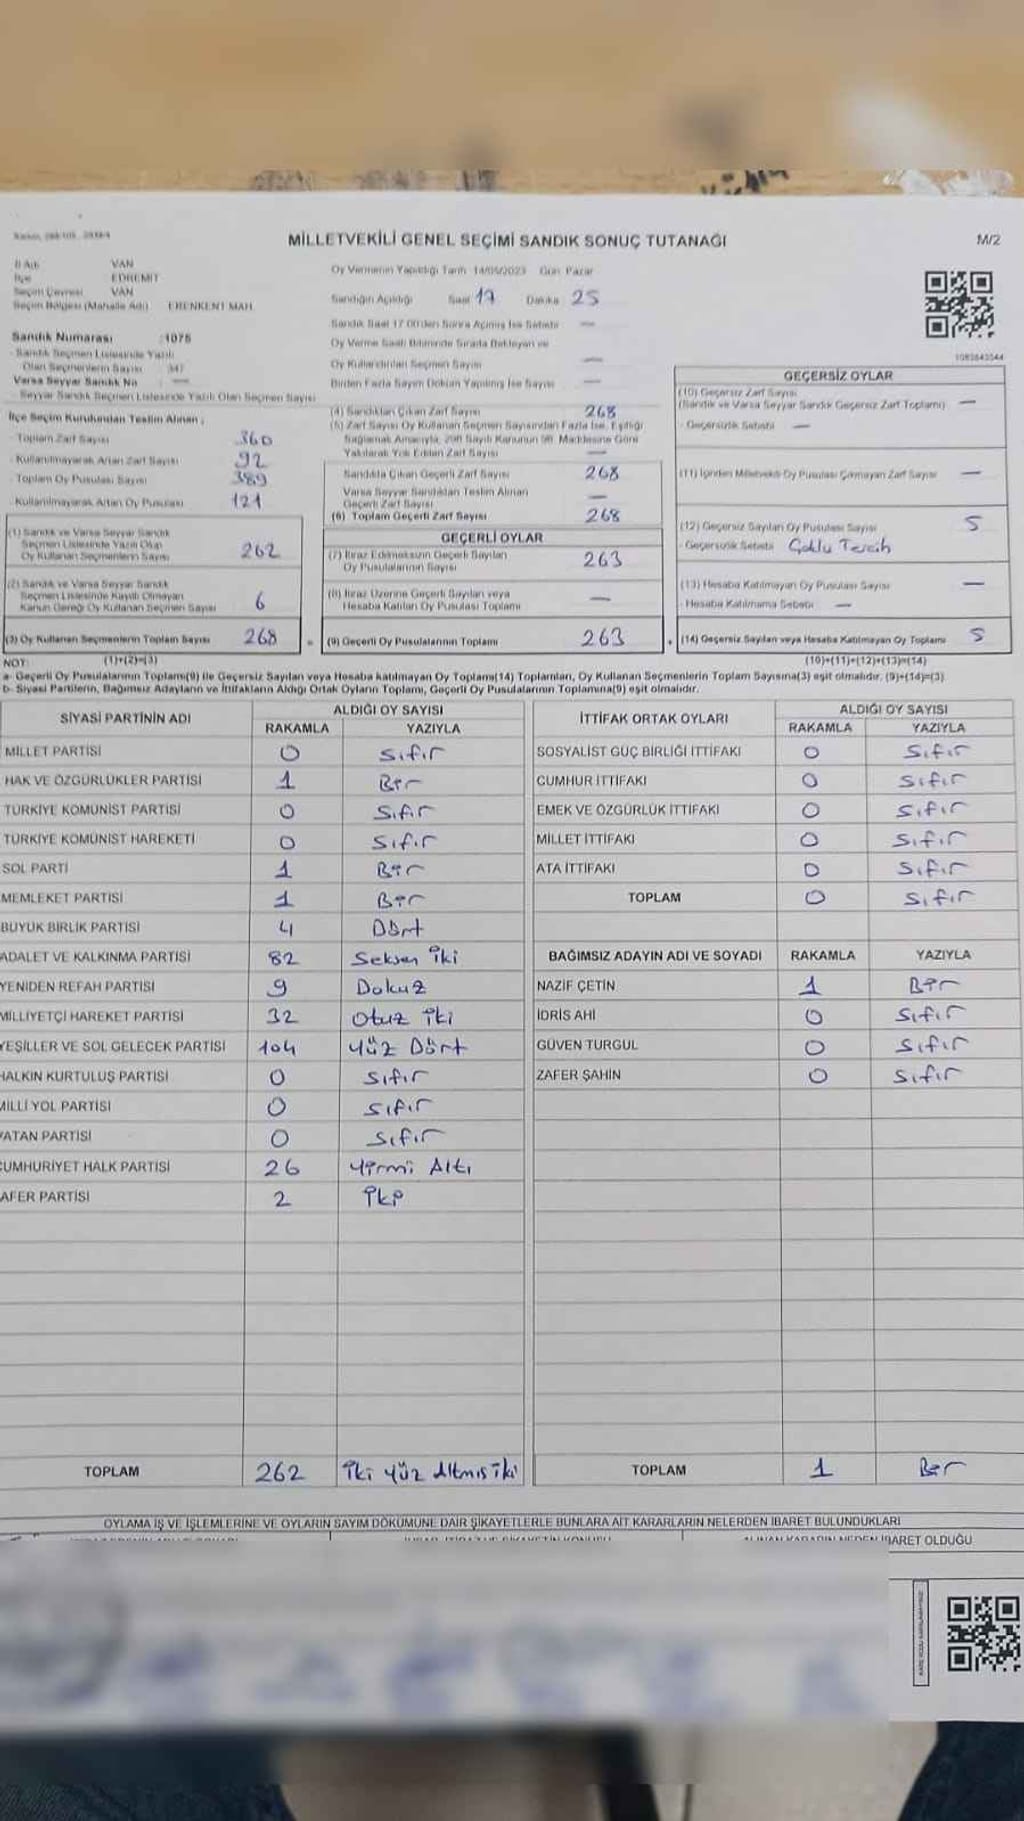 MİLLETVEKİLİ GENEL SEÇİMİ SANDIK SONUÇ TUTANAĞI
M/2
İl Adı VAN
İlçe EDREMİT
Seçim Çevresi VAN
Seçim Bölgesi (Mahalle Adı) ERENKENT MAH
Sandık Numarası :1075
- Sandık Seçmen Listesinde Yazılı
Olan Seçmenlerin Sayısı 347
Varsa Seyyar Sandık No —
- Seyyar Sandık Seçmen Listesinde Yazılı Olan Seçmen Sayısı
İlçe Seçim Kurulundan Teslim Alınan ;
- Toplam Zarf Sayısı 360
- Kullanılmayarak Artan Zarf Sayısı 92
Toplam Oy Pusulası Sayısı 389
- Kullanılmayarak Artan Oy Pusulası 121
(1) Sandık ve Varsa Seyyar Sandık
Seçmen Listesinde Yazılı Olup
Oy Kullanan Seçmenlerin Sayısı 262
(2) Sandık ve Varsa Seyyar Sandık
Seçmen Listesinde Kayıtlı Olmayan
Kanun Gereği Oy Kullanan Seçmen Sayısı 6
(3) Oy Kullanan Seçmenlerin Toplam Sayısı 268
(1)+(2)=(3)
Oy Vermenin Yapıldığı Tarih 14/05/2023 Gün Pazar
Sandığın Açıldığı Saat 17 Dakika 25
Sandık Saat 17.00'den Sonra Açılmış İse Sebebi —
Oy Verme Saati Bitiminde Sırada Bekleyen ve
Oy Kullandırılan Seçmen Sayısı —
Birden Fazla Sayım Döküm Yapılmış İse Sayısı —
(4) Sandıktan Çıkan Zarf Sayısı 268
(5) Zarf Sayısı Oy Kullanan Seçmen Sayısından Fazla İse, Eşitliği
Sağlamak Amacıyla, 298 Sayılı Kanunun 98. Maddesine Göre
Yakılarak Yok Edilen Zarf Sayısı —
Sandıkta Çıkan Geçerli Zarf Sayısı 268
Varsa Seyyar Sandıktan Teslim Alınan
Geçerli Zarf Sayısı —
(6) Toplam Geçerli Zarf Sayısı 268
GEÇERLİ OYLAR
(7) İtiraz Edilmeksizin Geçerli Sayılan
Oy Pusulalarının Sayısı 263
(8) İtiraz Üzerine Geçerli Sayılan veya
Hesaba Katılan Oy Pusulası Toplamı —
= (9) Geçerli Oy Pusulalarının Toplamı 263
GEÇERSİZ OYLAR
(10) Geçersiz Zarf Sayısı
(Sandık ve Varsa Seyyar Sandık Geçersiz Zarf Toplamı) —
- Geçersizlik Sebebi —
(11) İçinden Milletvekili Oy Pusulası Çıkmayan Zarf Sayısı —
(12) Geçersiz Sayılan Oy Pusulası Sayısı 5
- Geçersizlik Sebebi Çoklu Tercih
(13) Hesaba Katılmayan Oy Pusulası Sayısı —
- Hesaba Katılmama Sebebi —
+ (14) Geçersiz Sayılan veya Hesaba Katılmayan Oy Toplamı 5
(10)+(11)+(12)+(13)=(14)
NOT:
a- Geçerli Oy Pusulalarının Toplamı(9) ile Geçersiz Sayılan veya Hesaba katılmayan Oy Toplamı(14) Toplamları, Oy Kullanan Seçmenlerin Toplam Sayısına(3) eşit olmalıdır. (9)+(14)=(3)
b- Siyasi Partilerin, Bağımsız Adayların ve İttifakların Aldığı Ortak Oyların Toplamı, Geçerli Oy Pusulalarının Toplamına(9) eşit olmalıdır.
SİYASİ PARTİNİN ADI ALDIĞI OY SAYISI
RAKAMLA YAZIYLA
MİLLET PARTİSİ 0 Sıfır
HAK VE ÖZGÜRLÜKLER PARTİSİ 1 Bir
TÜRKİYE KOMÜNİST PARTİSİ 0 Sıfır
TÜRKİYE KOMÜNİST HAREKETİ 0 Sıfır
SOL PARTİ 1 Bir
MEMLEKET PARTİSİ 1 Bir
BÜYÜK BİRLİK PARTİSİ 4 Dört
ADALET VE KALKINMA PARTİSİ 82 Seksen iki
YENİDEN REFAH PARTİSİ 9 Dokuz
MİLLİYETÇİ HAREKET PARTİSİ 32 Otuz iki
YEŞİLLER VE SOL GELECEK PARTİSİ 104 Yüz Dört
HALKIN KURTULUŞ PARTİSİ 0 Sıfır
MİLLİ YOL PARTİSİ 0 Sıfır
VATAN PARTİSİ 0 Sıfır
CUMHURİYET HALK PARTİSİ 26 Yirmi Altı
AFER PARTİSİ 2 iki
TOPLAM 262 iki yüz Altmış iki
İTTİFAK ORTAK OYLARI ALDIĞI OY SAYISI
RAKAMLA YAZIYLA
SOSYALİST GÜÇ BİRLİĞİ İTTİFAKI 0 Sıfır
CUMHUR İTTİFAKI 0 Sıfır
EMEK VE ÖZGÜRLÜK İTTİFAKI 0 Sıfır
MİLLET İTTİFAKI 0 Sıfır
ATA İTTİFAKI 0 Sıfır
TOPLAM 0 Sıfır
BAĞIMSIZ ADAYIN ADI VE SOYADI RAKAMLA YAZIYLA
NAZİF ÇETİN 1 Bir
İDRİS AHİ 0 Sıfır
GÜVEN TURGUL 0 Sıfır
ZAFER ŞAHİN 0 Sıfır
TOPLAM 1 Bir
OYLAMA İŞ VE İŞLEMLERİNE VE OYLARIN SAYIM DÖKÜMÜNE DAİR ŞİKAYETLERLE BUNLARA AİT KARARLARIN NELERDEN İBARET BULUNDUKLARI
ALINAN KARARIN NEDEN İBARET OLDUĞU